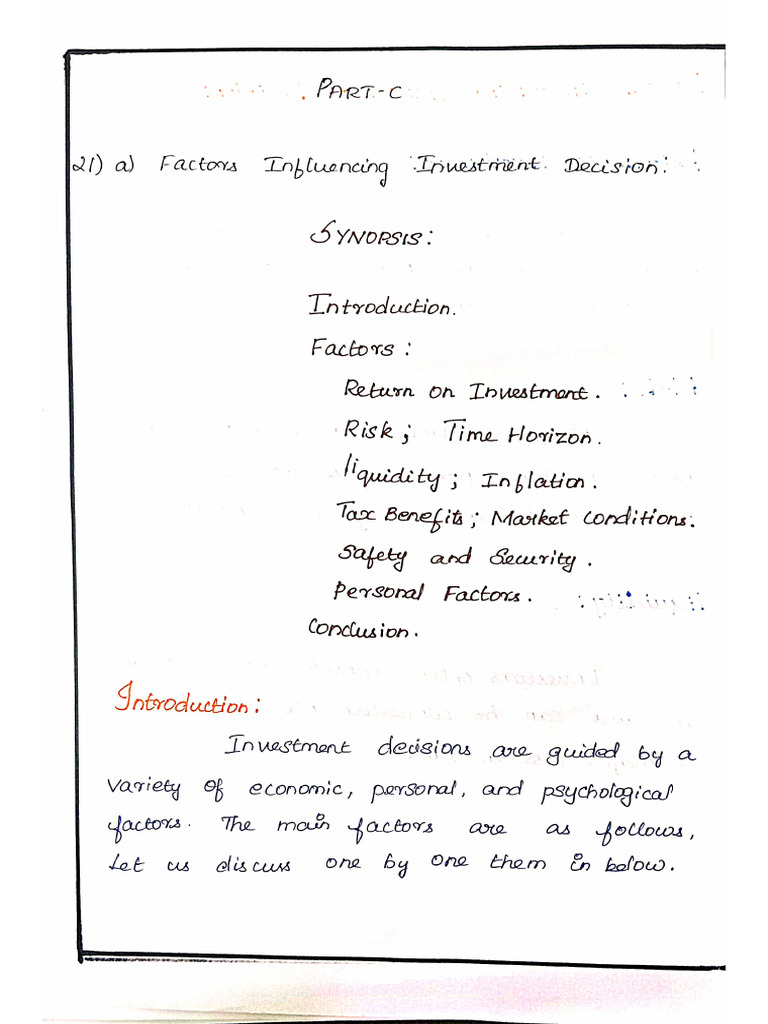 PART-C
21) a) Factors Influencing Investment Decision:
SYNOPSIS:
Introduction.
Factors:
Return on Investment.
Risk; Time Horizon.
liquidity; Inflation.
Tax Benefits; Market Conditions.
Safety and Security.
Personal Factors.
Conclusion.
Introduction:
Investment decisions are guided by a
variety of economic, personal, and psychological
factors. The main factors are as follows,
Let us discuss one by one them in below.